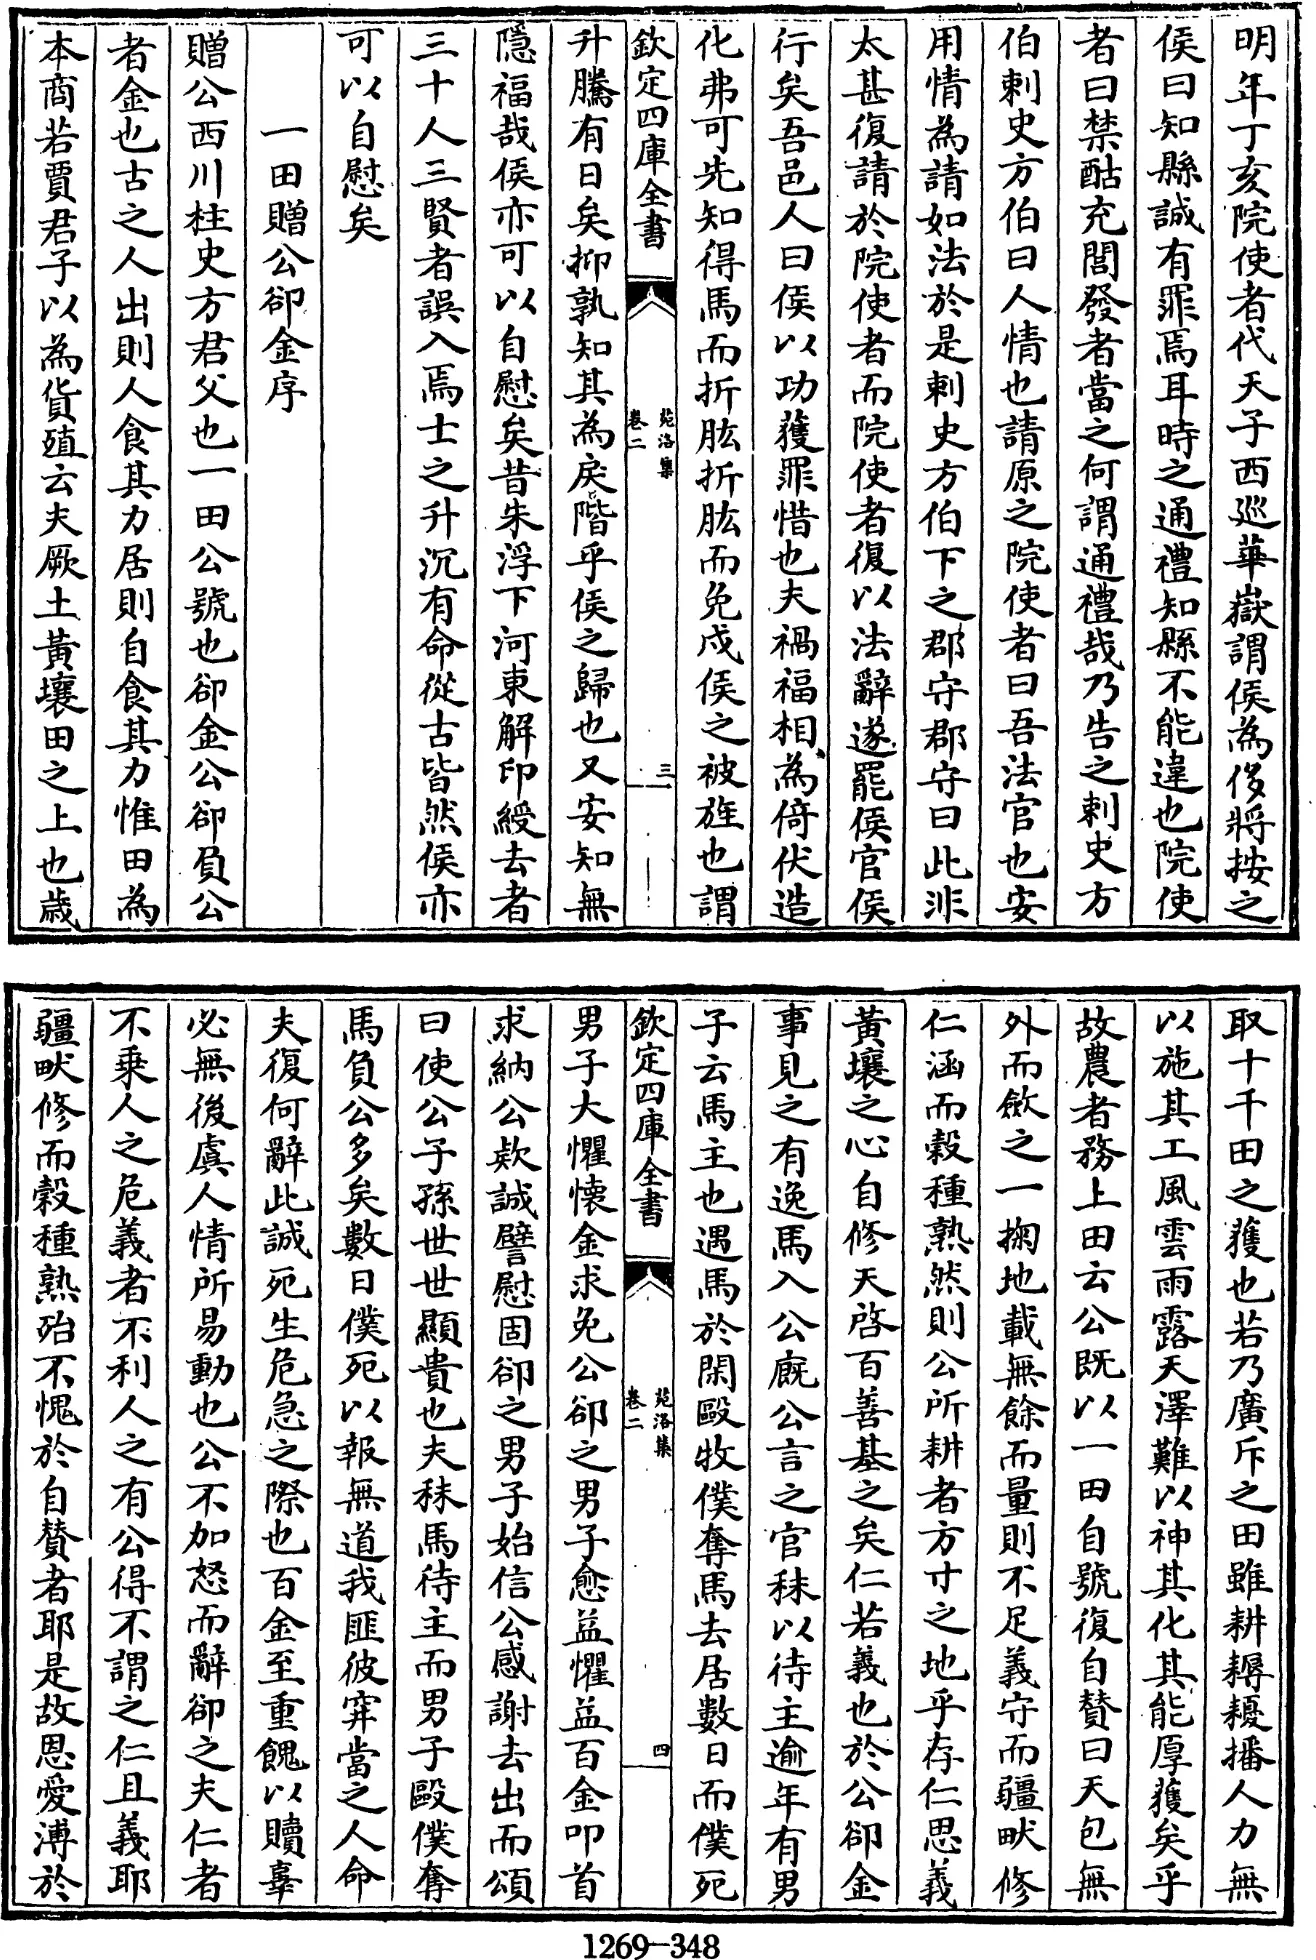 明年丁亥院使者代天子西廵華嶽謂侯為侈將按之
侯曰知縣誠有罪焉耳時之通禮知縣不能違也院使
者曰禁酤充閭發者當之何謂通禮哉乃告之刺史方
伯刺史方伯曰人情也請原之院使者曰吾法官也安
用情為請如法於是刺史方伯下之郡守郡守曰此非
太甚復請於院使者而院使者復以法辭遂罷侯官侯
行矣吾邑人曰侯以功獲罪惜也夫禍福相為倚伏造
化弗可先知得馬而折肱折肱而免戍侯之被旌也謂
欽定四庫全書
苑洛集
卷二
三
升騰有日矣抑孰知其為戾階乎侯之歸也又安知無
隱福哉侯亦可以自慰矣昔朱浮下河東解印綬去者
三十人三賢者誤入焉士之升沉有命從古皆然侯亦
可以自慰矣
一田贈公卻金序
贈公西川柱史方君父也一田公號也卻金公卻負公
者金也古之人出則人食其力居則自食其力惟田為
本商若賈君子以為貨殖云夫厥土黃壤田之上也歲
取十千田之獲也若乃廣斥之田雖耕耨耰播人力無
以施其工風雲雨露天澤難以神其化其能厚獲矣乎
故農者務上田云公既以一田自號復自贊曰天包無
外而斂之一掬地載無餘而量則不足義守而疆畎修
仁涵而穀種熟然則公所耕者方寸之地乎存仁思義
黃壤之心自修天啓百善基之矣仁若義也於公卻金
事見之有逸馬入公廐公言之官秣以待主逾年有男
子云馬主也遇馬於閑毆牧僕奪馬去居數日而僕死
欽定四庫全書
苑洛集
卷二
四
男子大懼懷金求免公卻之男子愈益懼益百金叩首
求納公欵誠譬慰固卻之男子始信公感謝去出而頌
曰使公子孫世世顯貴也夫秣馬待主而男子毆僕奪
馬負公多矣數日僕死以報無道我匪彼穽當之人命
夫復何辭此誠死生危急之際也百金至重餽以贖辜
必無後虞人情所易動也公不加怒而辭卻之夫仁者
不乗人之危義者不利人之有公得不謂之仁且義耶
疆畎修而穀種熟殆不愧於自贊者耶是故恩愛溥於
1269-348